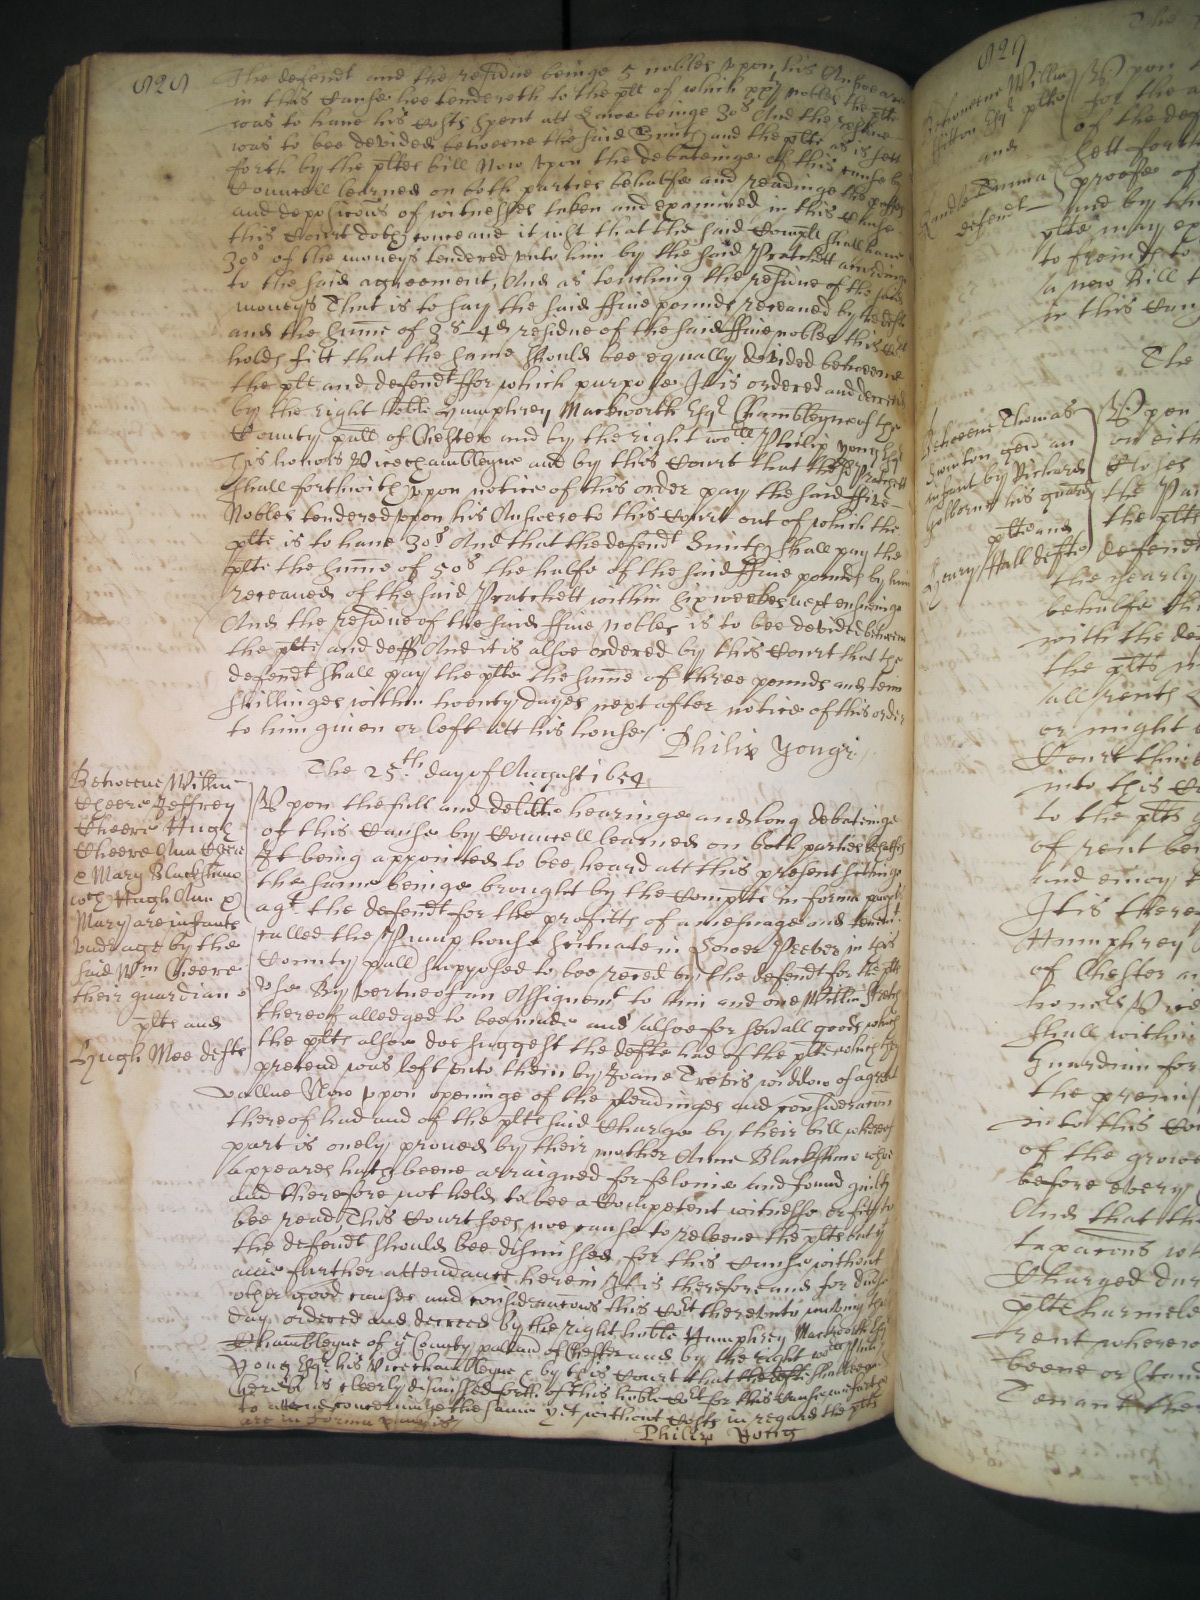 828
The defendt and the residue beinge 5 nobles upon his Answeare
in this Cause hee tendereth to the plt of which nobles the plt
was to have his Costs spent att Lawe beinge 30s And the residue
was to bee devided betweene the said Smith and the plte as is sett
forth by the pltes bill Now upon the debateinge of this cause by
Councell learned on both parties behalfe and readinge the
and deposicons of witnesses taken and examined in this Cause
this Court doth conceave it that the said Compl shall have
30s of the moneys tendered unto him by the said Pratchett accordinge
to the said agreement, And as touching the residue of the said
moneys That is to say the said ffive pounds receaved by the deft
and the Sume of 3s 4d residue of the said ffive nobles this Court
holds fitt that the same should bee equally devided betweene
the plt and defendt ffor which purpose It is ordered and decreed
by the right Hoble Humphrey Mackworth Esqr Chamberleyne of the
County pall of Chester and by the right woll Philip Yong Esqr
his honors Vicechamberleyne and by this Court that the sd Pratchett
shall forthwith upon notice of this order pay the said ffive
Nobles tendered upon his Answere to this Court out of which the
plte is to have 30s And that the defendt Smith shall pay the
plte the sume of 50s the halfe of the said ffive pounds by him
receaved of the said Pratchett within six weekes next ensueinge
And the residue of the said ffive nobles is to bee devided betweene
the plte and deft And it is alsoe ordered by this Court that the
defendt shall pay the plte the sume of three pounds and tenn
shillinges within twenty dayes next after notice of this order
to him given or left att his house/.
Philip Yonge
The 25th day of August 1654
Betweene Willm
Cheere Jeffrey
Cheere Hugh
Cheere Ann Cheere
& Mary Blackshawe
wch Hugh Ann &
Mary are infants
undr age by the
said Wm Cheere
their guardian
plts and
Hugh Mee defte
Upon the full and hearinge and long debateinge
of this Cause by Councell learned on both parties behalfes
It being appointed to bee heard att this present sittinge
the same beinge brought by the Complts in forma paupis
agt the defendt for the profitts of a mesuage and tenemt
called the Pump house scituate in Lower Peever in this
County pall supposed to bee reced by the defendt for the plts
use By vertue of an Assignemt to him and one Willm
thereof alledged to bee made and alsoe for sevall goods which
the plts alsoe doe suggest the defte had of the plts which they
pretend was left unto them by Joane widdow of a great
vallue Now upon openinge of the pleadinges and consideracon
thereof had and of the plts said Charge by their bill whereof
part is onely proved by their mother Anne Blackshawe whoe
appeares hath beene arraigned for felonie and found guilty
and therefore not held to bee a Competent witnesse or fitt to
bee read This Court sees noe cause to releeve the plts but yt
the defendt should bee dismissed for this Cause without
anie further attendance herein It is therefore and for divse
other good causes and consideracons this Cot thereunto moving this
day ordered and decreed by the right hoble Humphrey Mackworth Esqr
Chamberleyne of ye County pall of Chester and by the right woll Philip
Yong Esqr his Vicechamberleyne & by this Court that the defte shall bee
is cleerly dismissed forth of this hoble Cot for this Cause
to the same yet without Costs in regard the plts
are in forma paupis
Philip Yong
829
Betweene Willm
ffitton Esqr plte
and
defendt
Upon
for the
of the
sett forth
proofe of
And by
plte may
to
a new bill
in this
The
Betweene Thomas
gen an
infant by Richard
Golborne his guard
plte and
Henry Hall defte
Upon
on eith
the
the plte
defendt
the yearly
behalfe
with the
the plts
all rents
or might
Court
into this
to the plts
of rent
and enioy
It is there
Humphrey
of Chester
honors Vice
shall within
Guardian for
the premis
into this
of the
before every
And that the
wt
Charged
plte harmele
rent where
beene or stand
Tenant